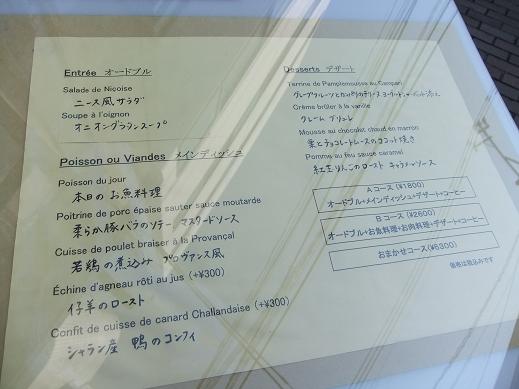 Entrée オードブル
Salade de Nicoise
ニース風サラダ
Soupe à l'oignon
オニオングラタンスープ
Poisson ou Viandes メインディッシュ
Poisson du jour
本日のお魚料理
Poitrine de porc épaise sauter sauce moutarde
柔らか豚バラのソテー マスタードソース
Cuisse de poulet braiser à la Provançal
若鶏の煮込み プロヴァンス風
Échine d'agneau rôti au jus (+¥300)
仔羊のロースト
Confit de cuisse de canard Challandaise (+¥300)
シャラン産 鴨のコンフィ
Desserts デザート
Terrine de Pamplemousse au Campari
グレープフルーツとカンパリのテリーヌ ヨーグルト
Crème brûler à la vanille
クレーム ブリュレ
Mousse au chocolat chaud en marron
栗とチョコレートムースのココット焼き
Pomme au feu sauce caramel
紅玉りんごのロースト キャラメルソース
Aコース (¥1800)
オードブル+メインディッシュ+デザート+コーヒー
Bコース (¥2600)
オードブル+お魚料理+お肉料理+デザート+コーヒー
おまかせコース(¥6300)
価格は税込みです